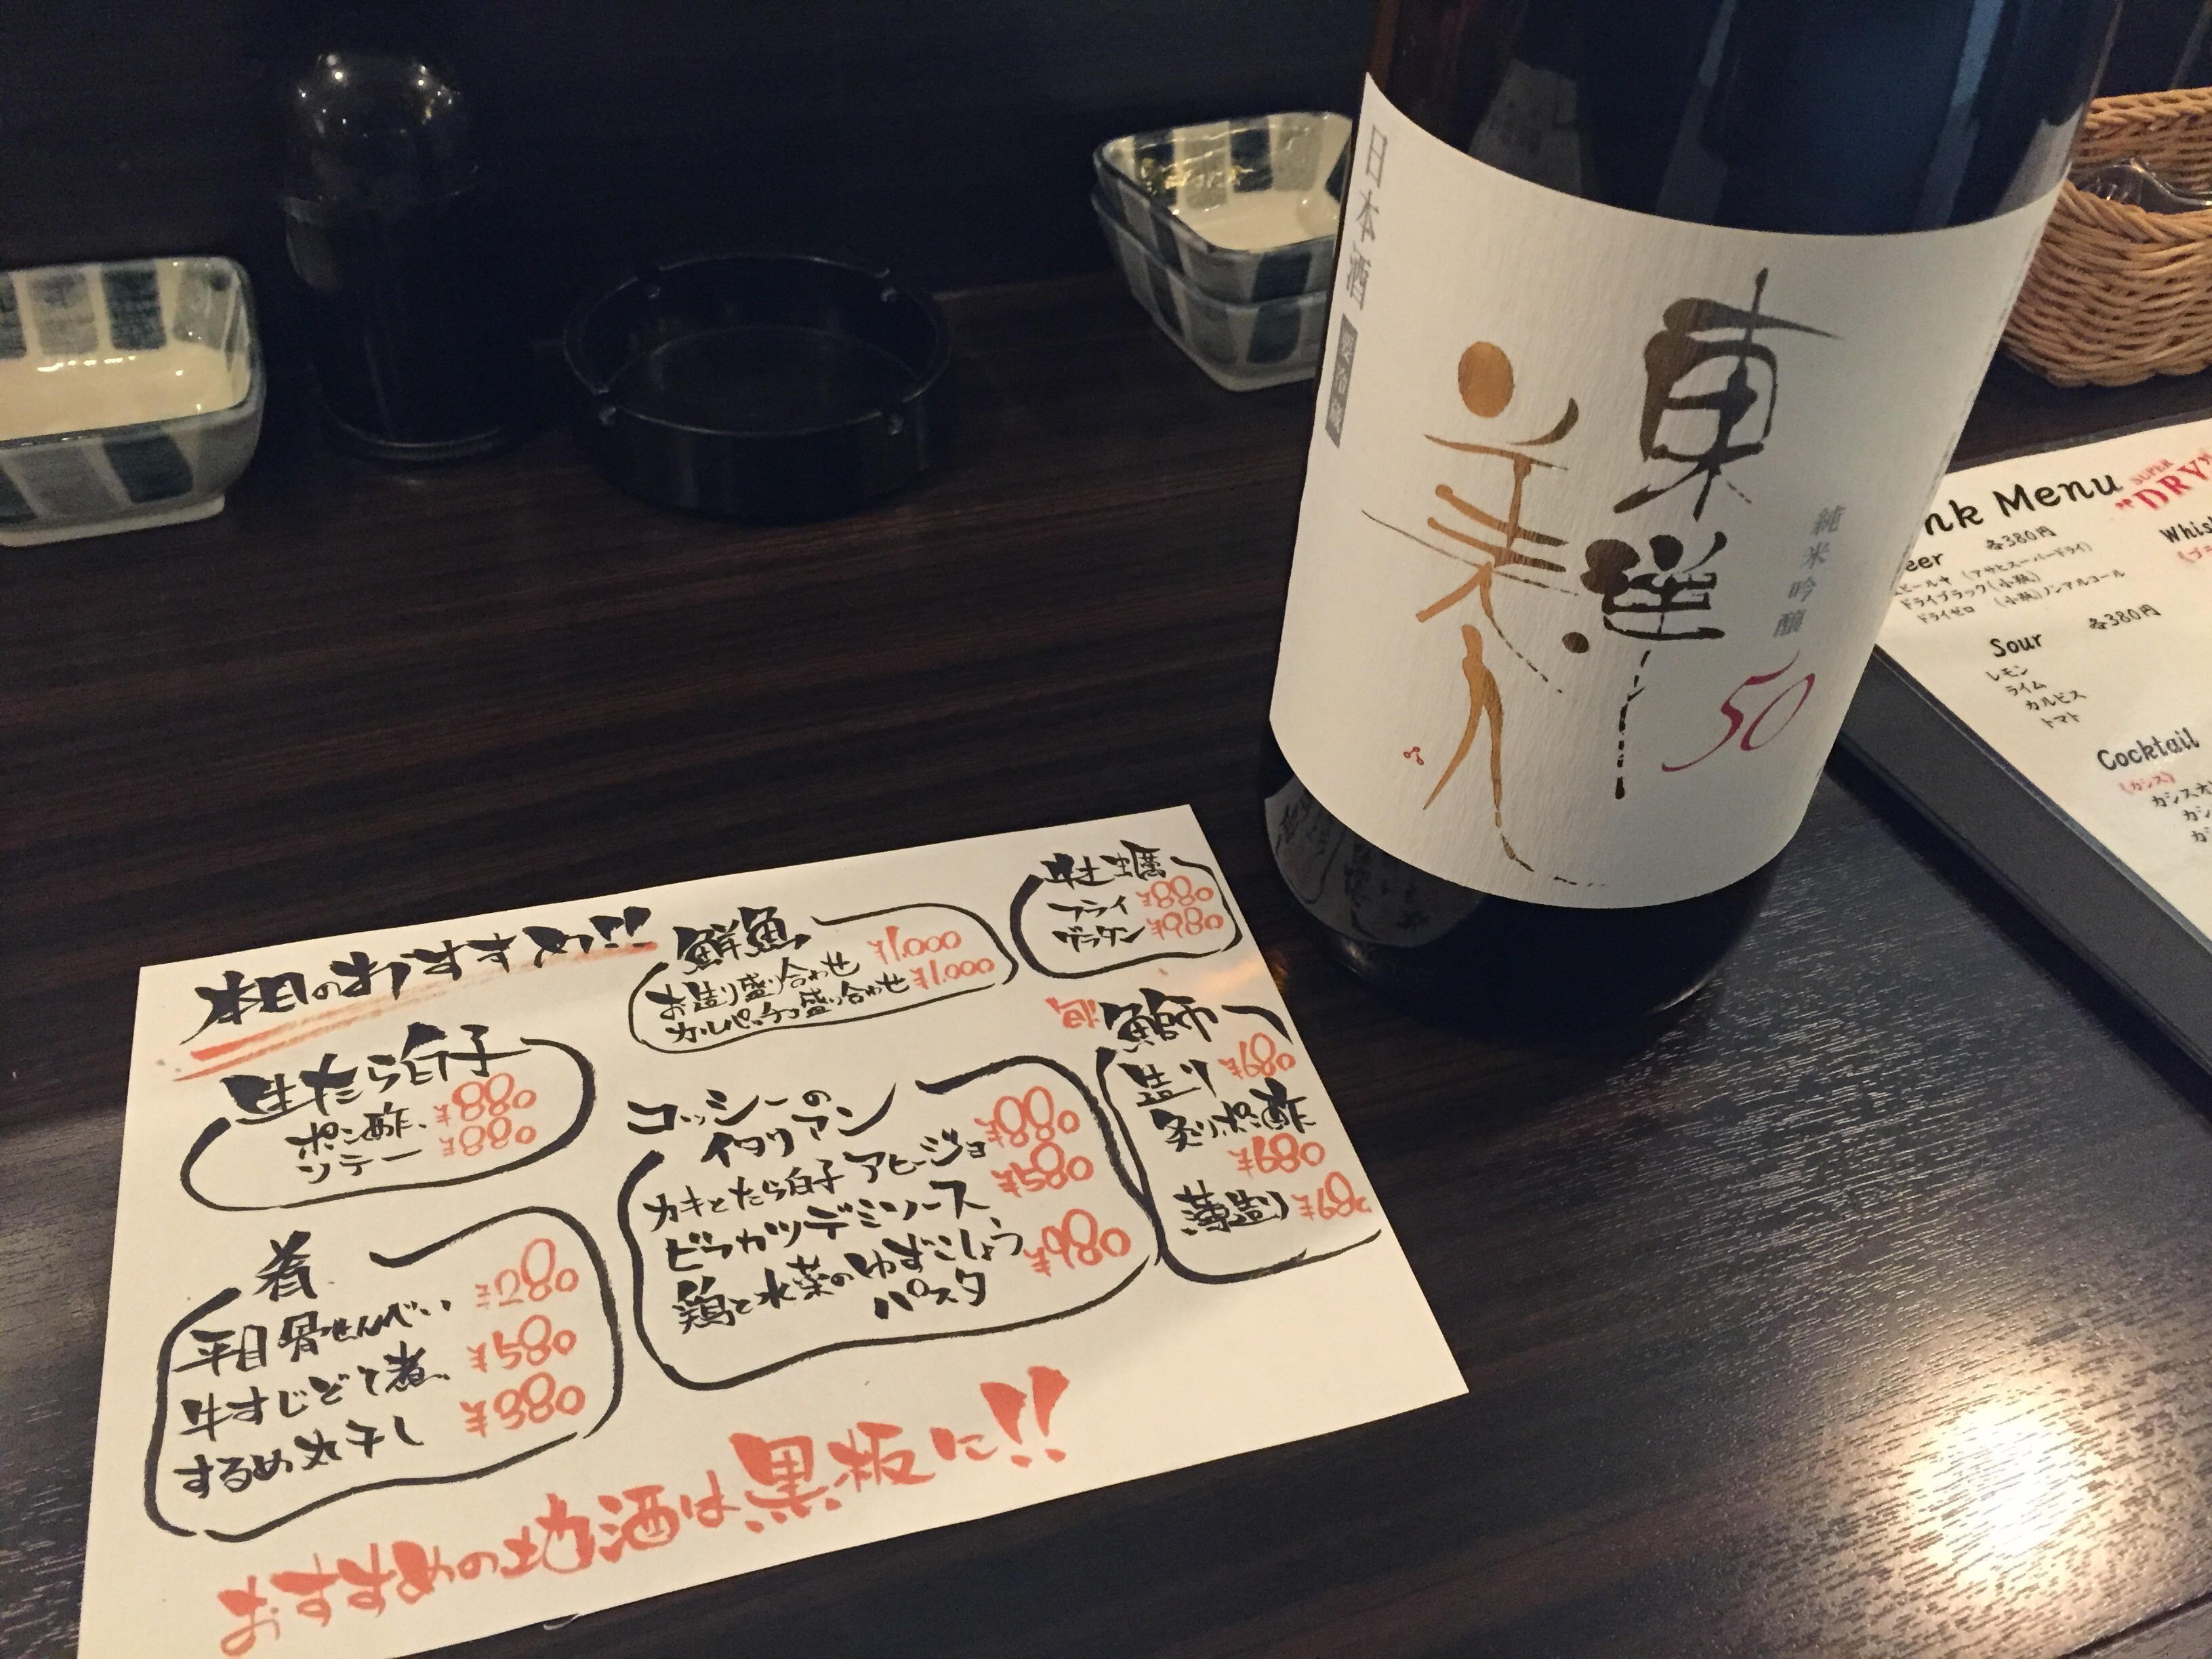 日本酒
要冷蔵
東洋
美人
純米吟醸
50
本日のおすすめ!!
生たら白子
ポン酢 ¥880
ソテー ¥880
肴
平目骨せんべい ¥280
牛すじどて煮 ¥580
するめ丸干し ¥380
鮮魚
お造り盛り合わせ ¥1.000
カルパッチョ盛り合わせ ¥1.000
コッシーの
イタリアン
カキとたら白子アヒージョ ¥880
ビフカツデミソース ¥580
鶏と水菜のゆずこしょう
パスタ ¥680
牡蠣
フライ ¥880
グラタン ¥980
旬 鰤
造り ¥680
炙りポン酢
¥680
薄造り ¥680
おすすめの地酒は黒板に!!
nk Menu
SUPER
"DRY"
eer 各380円
ビール中 (アサヒスーパードライ)
ドライブラック(小瓶)
ドライゼロ (小瓶)ノンアルコール
Sour 各380円
レモン
ライム
カルピス
トマト
Whis
Cocktail
(カシス)
カシスオ
カシ
カ